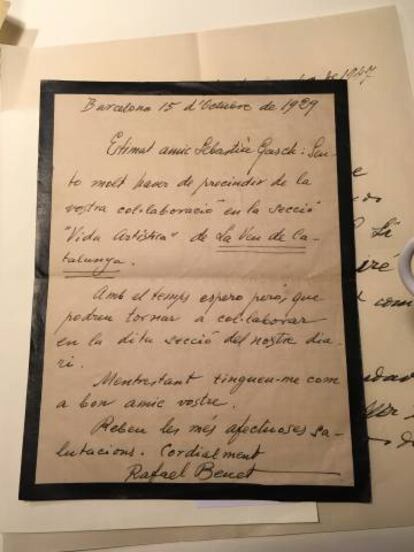 Barcelona 15 d'Octubre de 1929
Estimat amic Sebastià Gasch: Sen-
to molt haver de precindir de la
vostra col·laboració en la secció
"Vida Artística" de La Veu de Ca-
talunya.
Amb el temps espero però, que
podreu tornar a col·laborar
en la dita secció del nostre dia-
ri.
Mentrestant tingueu-me com
a bon amic vostre.
Rebeu les més afectuoses sa-
lutacions. Cordialment
Rafael Benet
de 1927